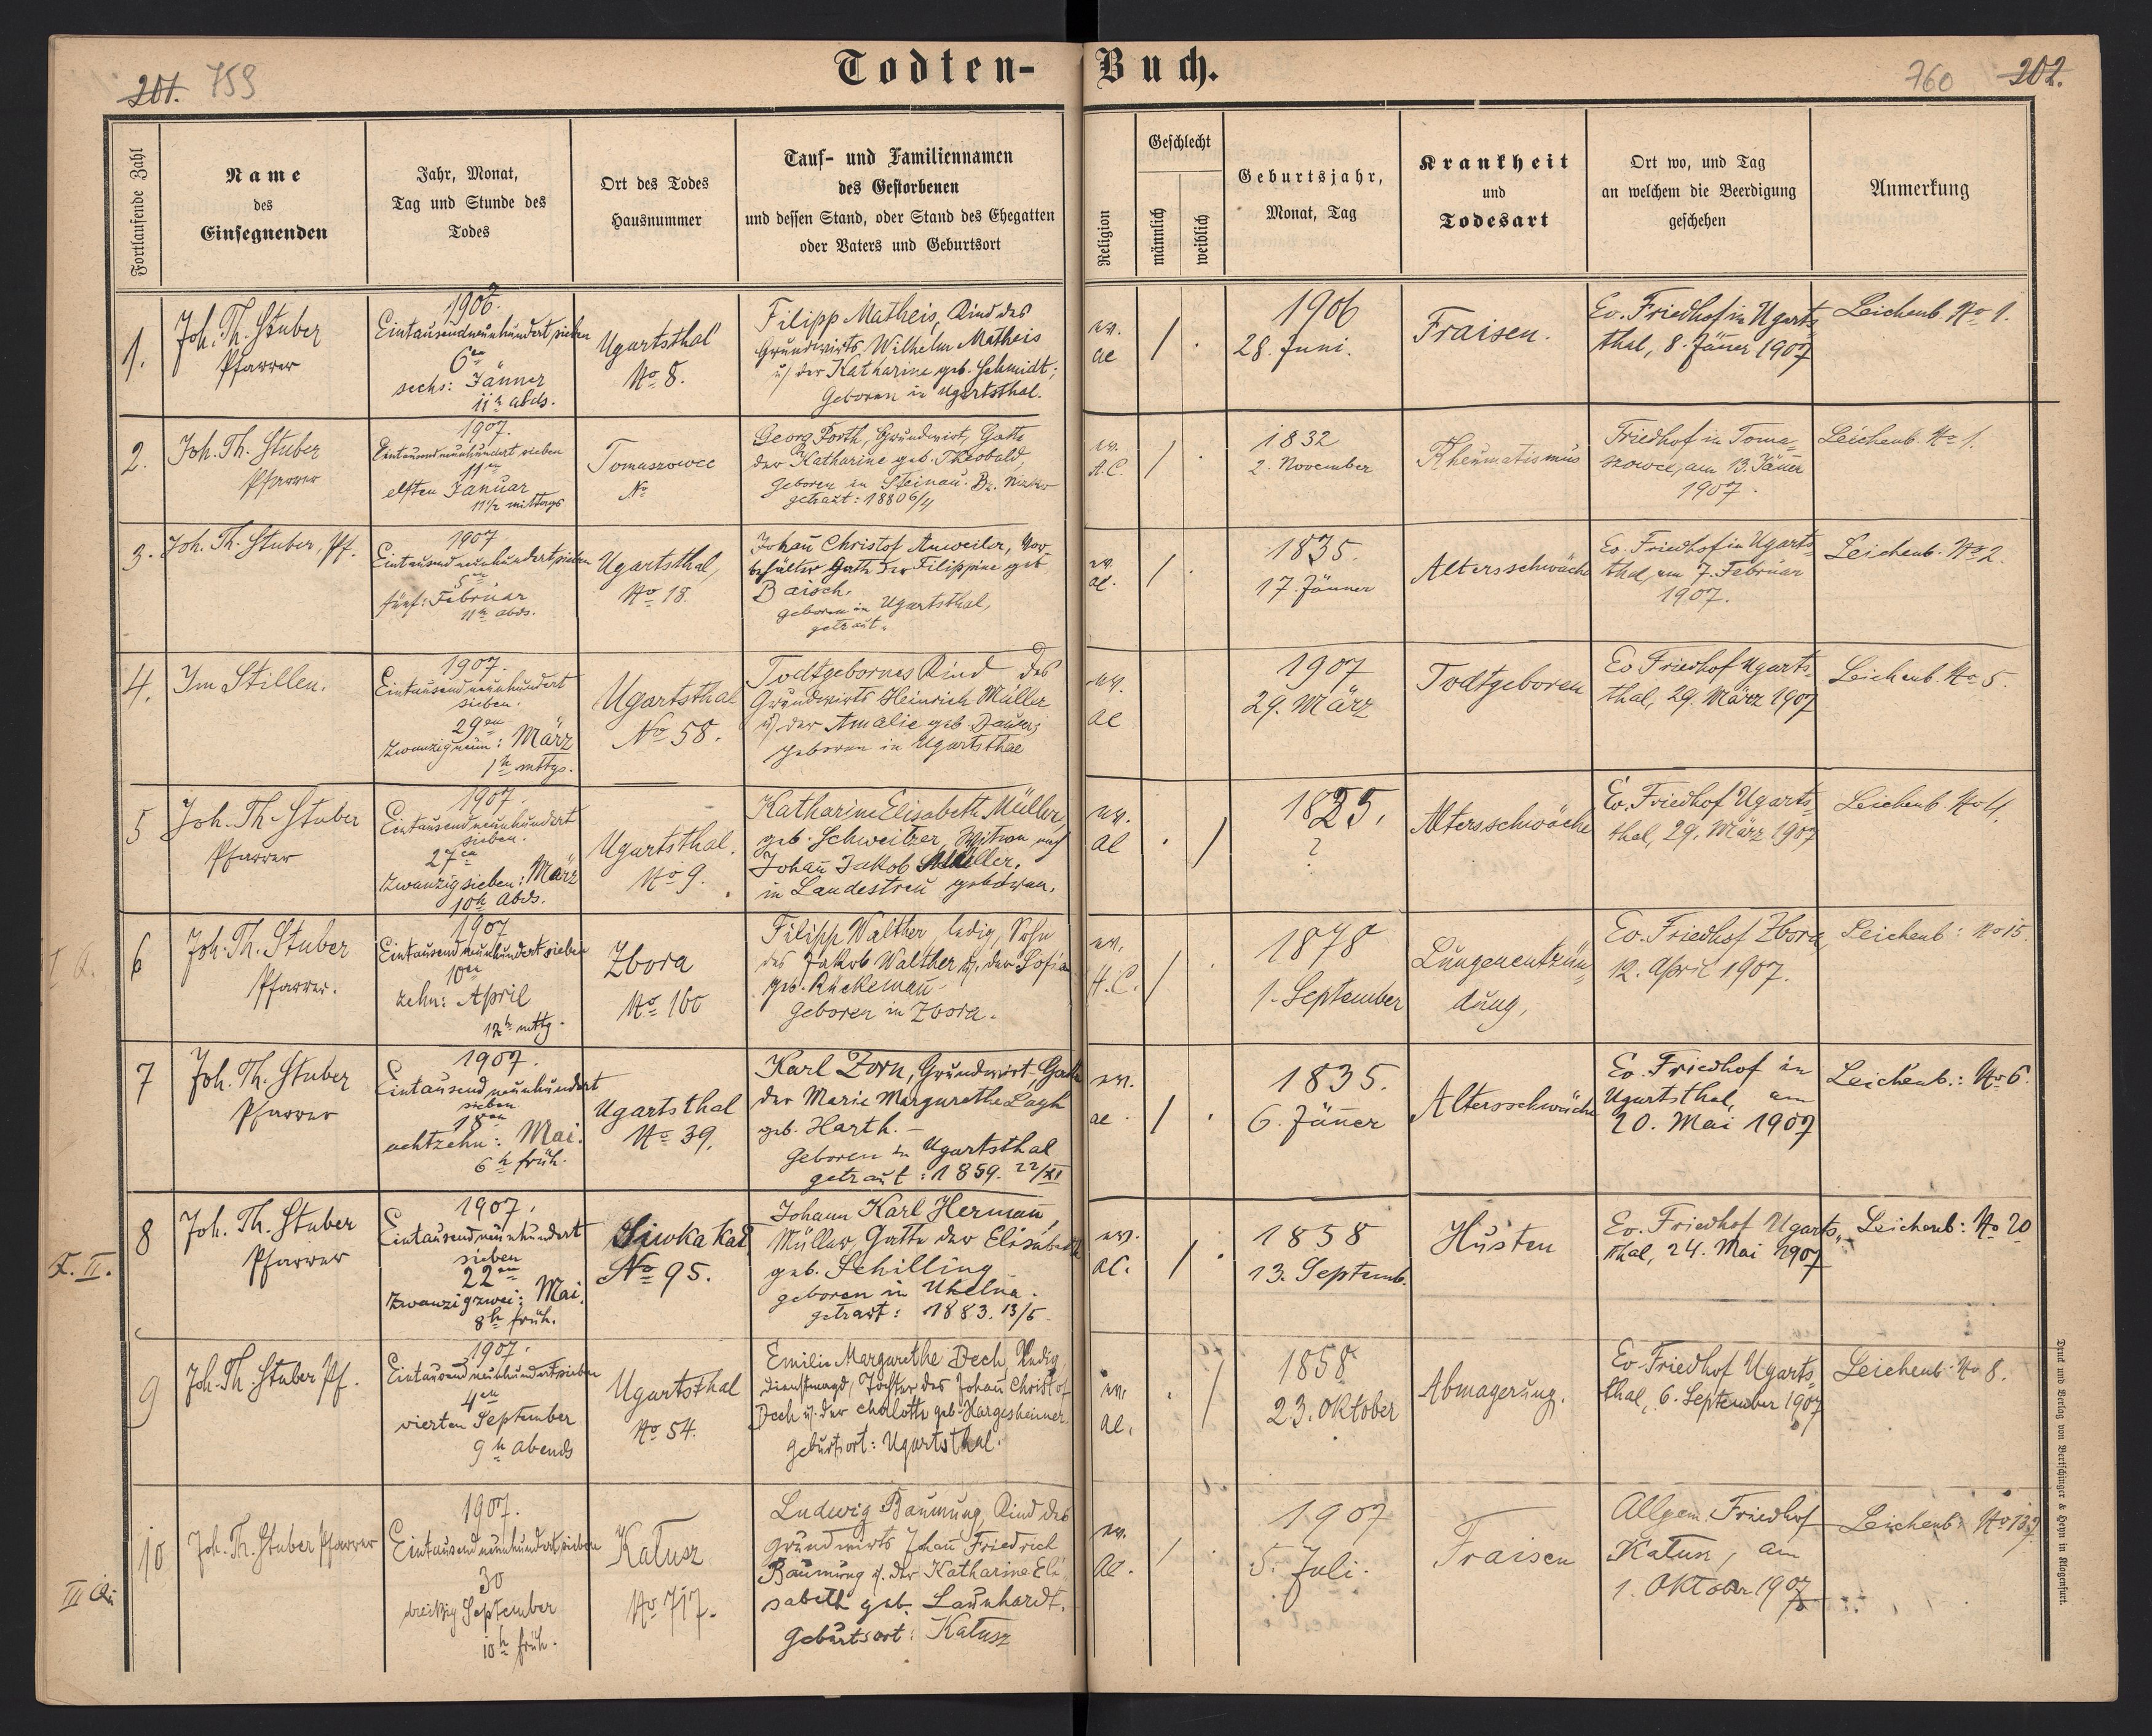 Todten-Buch.
201. 759
760 202.
Fortlaufende Zahl
Name
des
Einsegnenden
Jahr, Monat,
Tag und Stunde des
Todes
Ort des Todes
Hausnummer
Tauf- und Familiennamen
des Gestorbenen
und dessen Stand, oder Stand des Ehegatten
oder Vaters und Geburtsort
Religion
Geschlecht
männlich
weiblich
Geburtsjahr,
Monat, Tag
Krankheit
und
Todesart
Ort wo, und Tag
an welchem die Beerdigung
geschehen
Anmerkung
1.
Joh. Th. Stuber
Pfarrer
Eintausendneunhundert sieben
6en
sechs: Jänner
11h abds.
Ugartsthal
No 8.
Filipp Matheis, Kind des
Grundwirts Wilhelm Matheis
u/ der Katharine geb. Schmidt;
Geboren in Ugartsthal.
ev.
ac
/ .
1906
28. Juni.
Fraisen.
Ev. Friedhof in Ugarts-
thal, 8. Jäner 1907
Leichenb. No 1.
2.
Joh. Th. Stuber
Pfarrer
1907.
Eintausendneunhundert sieben
11en
elften Januar
11 1/2 mittags
Tomaszowce
No
Georg Forth, Grundwirt, Gatte
der Katharine geb. Theobald,
geboren in Steinau. Bz. Nisko
getraut: 1880 6/4
ev.
A.C.
/ .
1832
2. November
Rheumatismus
Friedhof in Toma-
szowce, am 13. Jäner
1907.
Leichenb. No 1.
3.
Joh. Th. Stuber, Pf.
1907
Eintausendneunhundertsieben
5en
fünf: Februar
11h abds.
Ugartsthal,
No 18.
Johan Christof Anweiler,
Gatte der Filippine geb
Baisch,
geboren in Ugartsthal,
getraut.
ev.
ac.
/ .
1835.
17. Jänner
Altersschwäche
Ev. Friedhof in Ugarts-
thal, am 7. Februar
1907.
Leichenb. No 2.
4.
Im Stillen.
1907.
Eintausendneunhundert
sieben.
29en
Zwanzigneun: März
1h mttgs.
Ugartsthal
No 58.
Todtgebornes Kind des
Grundwirts Heinrich Müller
u/ der Amalie geb. Daum;
geboren in Ugartsthal
ev.
ac
1907
29. März
Todtgeboren
Ev Friedhof Ugarts-
thal, 29. März 1907
Leichenb. No 5.
5
Joh. Th. Stuber
Pfarrer
1907.
Eintausendneunhundert
sieben.
27en
Zwanzigsieben: März
10h Abds.
Ugartsthal.
No 9.
Katharine Elisabeth Müller,
geb. Schweitzer, Witwe nach
Johan Jakob Müller,
in Landestreu geboren.
ev.
ac
. /
1825.
?
Altersschwäche
Ev. Friedhof Ugarts-
thal, 29. März 1907
Leichenb. No 4.
6
Joh. Th. Stuber
Pfarrer.
1907
Eintausendneunhundertsieben
10en
zehn: April
12h mttg.
Zbora
No 160
Filipp Walther, ledig, Sohn
des Jakob Walther u. der Sofia
geb. Rückeman
Geboren in Zbora.
ev.
H.C.
/ .
1878
1. September
Lungenentzün-
dung,
Ev. Friedhof Zbora,
12. April 1907.
Leichenb: No 15.
7
Joh. Th. Stuber
Pfarrer
1907.
Eintausendneunhundert
sieben
18en
achtzehn: Mai.
6h früh.
Ugartsthal
No 39.
Karl Zorn, Grundwirt, Gatte
der Marie Margarethe
geb. Harth.
Geboren in Ugartsthal
getraut: 1859. 22/XI
ev.
ac.
/ .
1835.
6. Jäner
Altersschwäche
Ev. Friedhof in
Ugartsthal, am
20. Mai 1907
Leichenb.: No 6.
T. II.
8
Joh. Th. Stuber
Pfarrer
1907.
Eintausendneunhundert
sieben
22en
Zwanzigzwei: Mai.
8h früh.
Siwka Kal
No 95.
Johann Karl Herman
Müller, Gatte der Elisabeth
geb. Schilling
geboren in Ukelna.
getraut: 1883. 13/5
ev.
ac.
/ .
1858
13. Septemb.
Husten
Ev. Friedhof Ugarts-
thal, 24. Mai 1907
Leichenb: No 20
9
Joh. Th. Stuber Pf.
1907.
Eintausendneunhundertsieben
4en
vierten September
9h abends
Ugartsthal
No 54.
Emilie Margarethe Dech, Ledig
Dienstmagd, Tochter des Johan Christof
Dech u. der Charlotte geb. Hargesheimer.
Geburtsort: Ugartsthal.
ev.
ac.
. /
1858
23. Oktober
Abmagerung.
Ev. Friedhof Ugarts-
thal, 6. September 1907
Leichenb. No 8.
III Qu
10
Joh. Th. Stuber Pfarrer
1907.
Eintausendneunhundertsieben
30
dreißig September
10h früh.
Kalusz
No 717.
Ludwig Baumung, Kind des
Grundwirts Johan Friedrich
Baumung u. der Katharine Eli-
sabeth geb. Launhardt.
Geburtsort: Kalusz
ev.
ac.
/ .
1907
5. Juli.
Fraisen
Allgem. Friedhof
Kalusz, am
1. Oktober 1907
Leichenb:
Druck und Verlag von Bertschinger & Heyn in Klagenfurt.